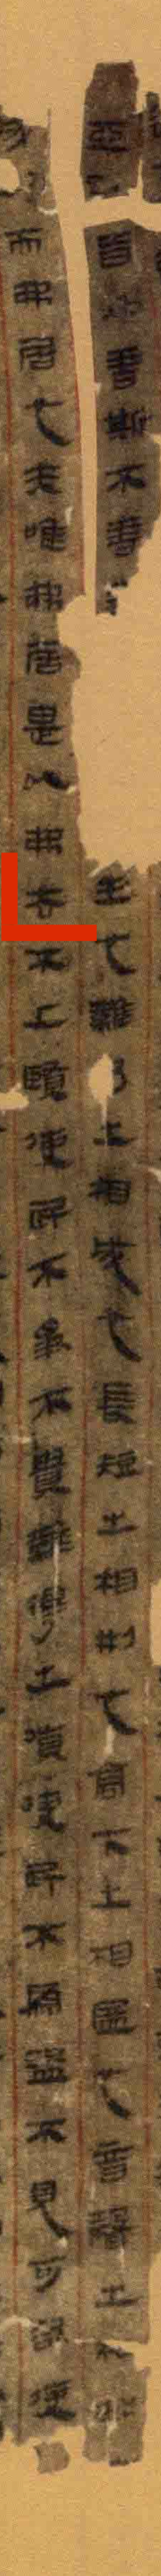 亞已皆知善斯不善生也難易之相成也長短之相刑也高下之相盈也音聲之相和
而弗居也夫唯弗居是以弗去不上賢使民不爭不貴難得之貨使民不為盜不見可欲使